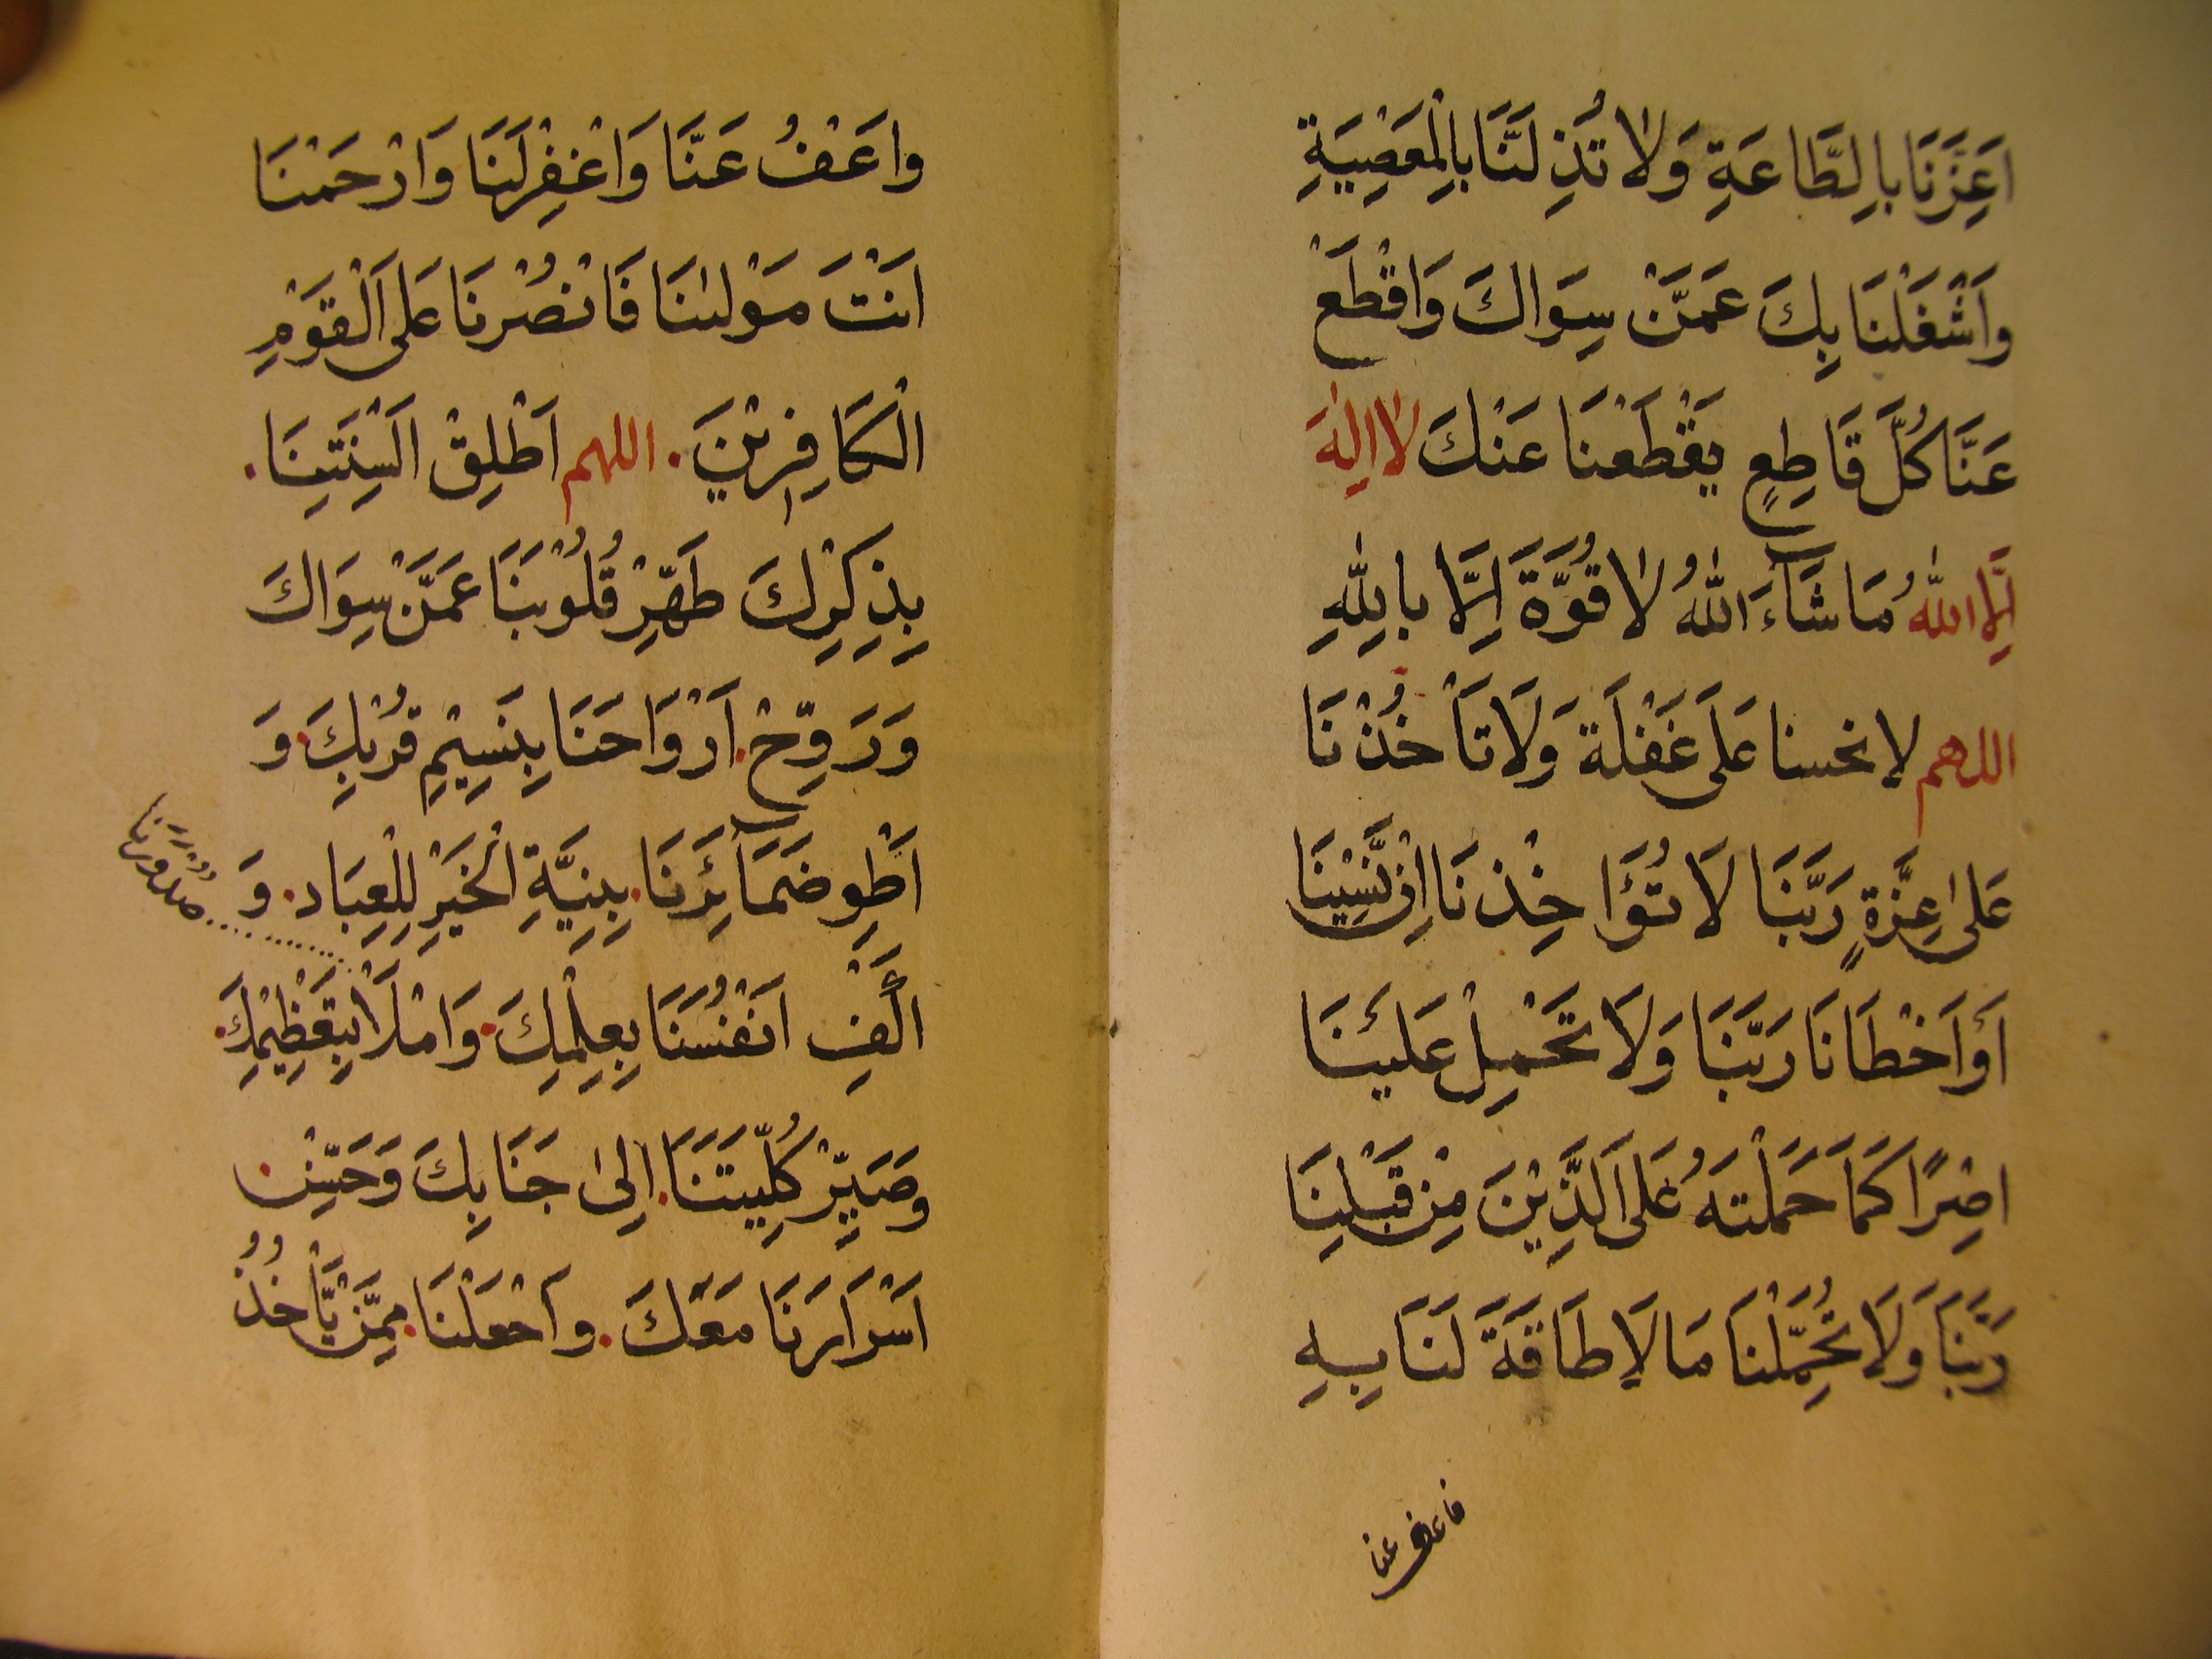 اَعِزَّنَا بِالطَّاعَةِ وَلَا تُذِلَّنَا بِالْمَعْصِيَةِ
وَاَشْغَلْنَا بِكَ عَمَّنْ سِوَاكَ وَاقْطَعْ
عَنَّا كُلَّ قَاطِعٍ يَقْطَعْنَا عَنْكَ لَا اِلٰهَ
اِلَّا اللّٰهُ مَا شَآءَ اللّٰهُ لَا قُوَّةَ اِلَّا بِاللّٰهِ
اللهم لا تحسنا عَلَى غَفْلَة وَلَا تَأْخُذْنَا
عَلىٰ عِزَّةٍ رَبَّنَا لَا تُؤَاخِذْنَا اِنْ نَّسِيْنَا
اَوْ اَخْطَانَا رَبَّنَا وَلَا تَحْمِلْ عَلَيْنَا
اِصْرًا كَمَا حَمَلْتَهُ عَلَى الَّذِيْنَ مِنْ قَبْلِنَا
رَبَّنَا وَلَا تُحَمِّلْنَا مَا لَا طَاقَةَ لَنَا بِهِ
فاعف عنا
وَاعَفُ عَنَّا وَاغْفِرْلَنَا وَارْحَمْنَا
اَنْتَ مَوْلٰىنَا فَانْصُرْنَا عَلَى الْقَوْمِ
الْكَافِرِيْنَ. اللهم اَطْلِقْ اَلْسِنَتِنَا.
بِذِكْرِكَ طَهِّرْ قُلُوْبَنَا عَمَّنْ سِوَاكَ
وَرَوِّحْ. اَرْوَاحَنَا بِنَسِيْمِ قُرْبِكَ. وَ
اَطْوِ ضَمَآئِرَنَا. بِنِيَّةِ الْخَيْرِ لِلْعِبَاد. وَ
صُدُوْرَنَا
اَلِّفْ اَنْفُسَنَا بِعِلْمِكَ. وَامْلَأْ بِتَعْظِيْمِكَ.
وَصَيِّرْ كُلِّيَّتَنَا. اِلىٰ جَنَابِكَ وَحَسِّنْ.
اَسْرَارَنَا مَعَكَ. وَاجْعَلْنَا. مِمَّنْ يَّأْخُذُ